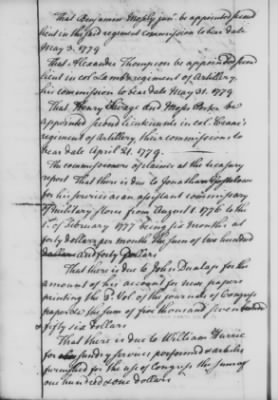 That Benjamin Mosely junr. be appointed second
lieut in the said regiment commission to bear date
May 3. 1779
That Alexander Thompson be appointed second
lieut in col Lamb's regiment of Artillery,
his commission to bear date May 31. 1779
That Henry and Moses Porter be
appointed second lieutenants in col. Crane's
regiment of Artillery, their commissions to
bear date April 21. 1779.
The commissioners of claims at the treasury
report That there is due to Jonathan
for his services as an assistant commissary
of military stores from August 1. 1776 to the
1st. of February 1777 being six months at
forty dollars per month the sum of two hundred
and forty dollars
That there is due to John Dunlap for the
amount of his account for news papers
printing the Vol of the journals of Congress
paper &c the sum of five thousand seven hundred
fifty six dollars
That there is due to William Turrie
for sundry services performed & articles
furnished for the use of Congress the sum of
one hundred & one dollars